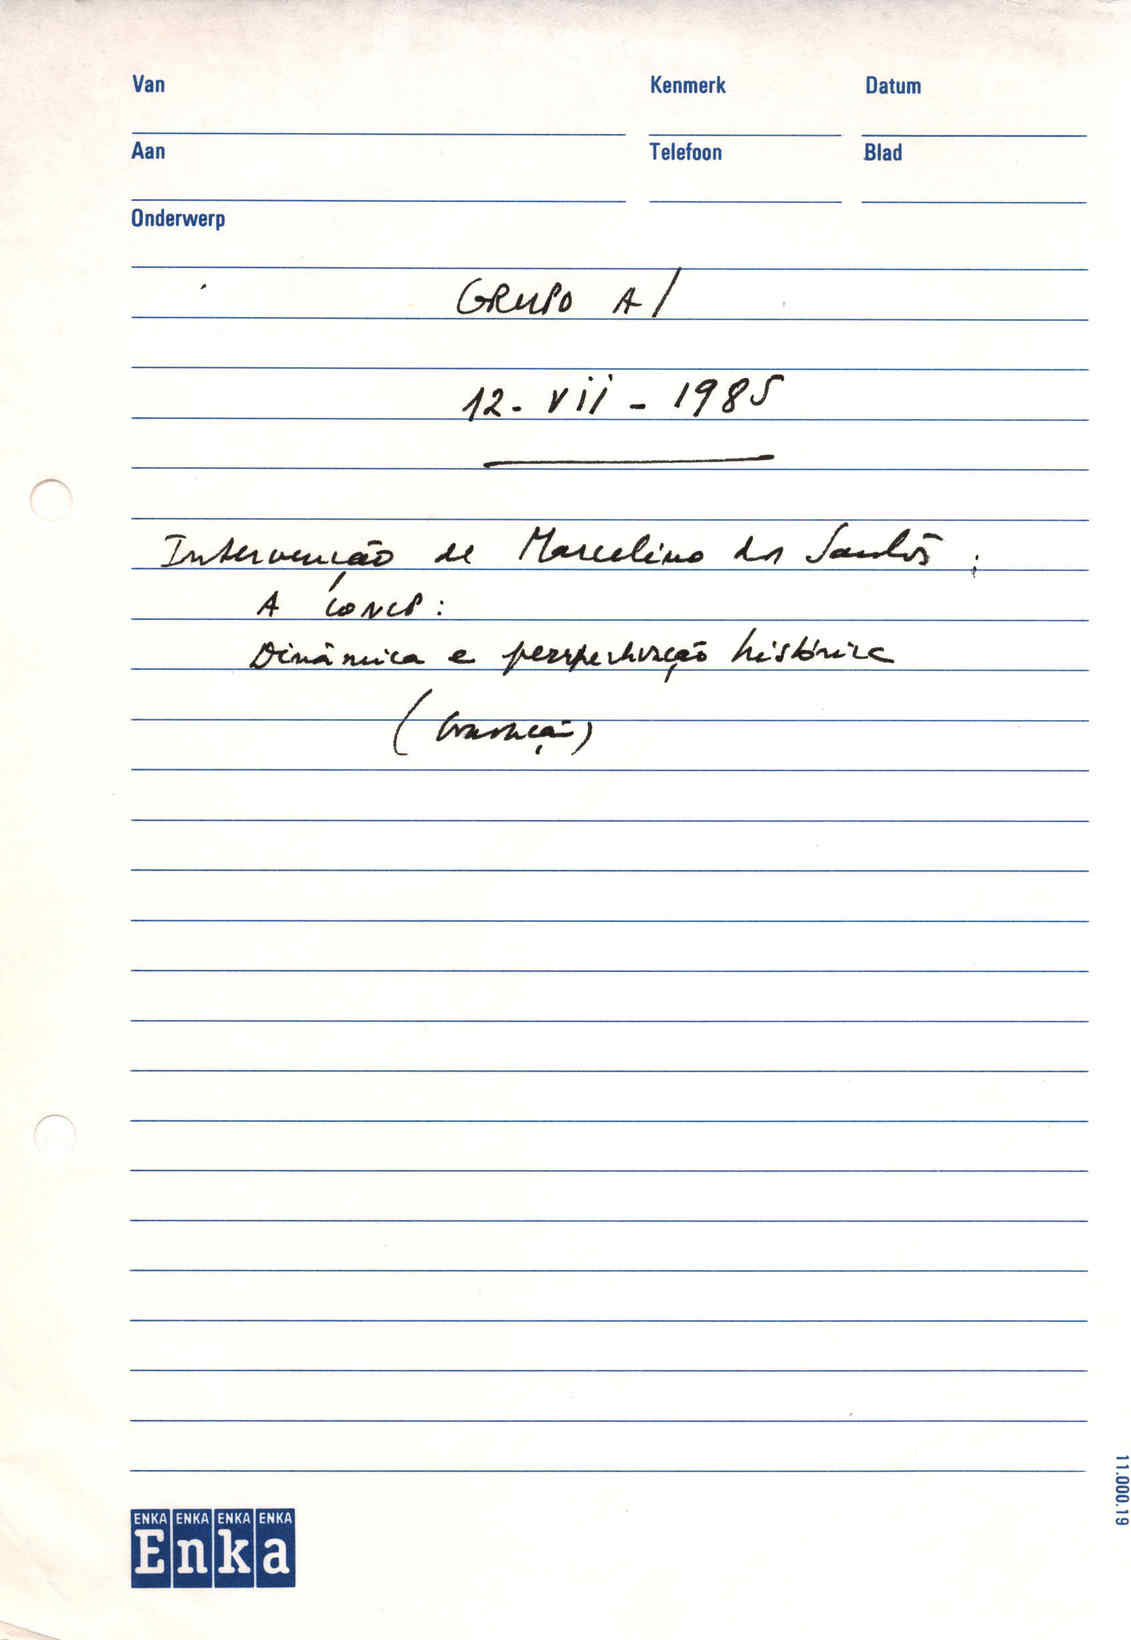 Van Kenmerk Datum
Aan Telefoon Blad
Onderwerp
GRUPO A/
12 - Vii - 1985
Intervenção de Marcelino dos Santos:
A CONCP:
Dinâmica e perspectivação histórica
11.000.19
ENKA ENKA ENKA ENKA
Enka